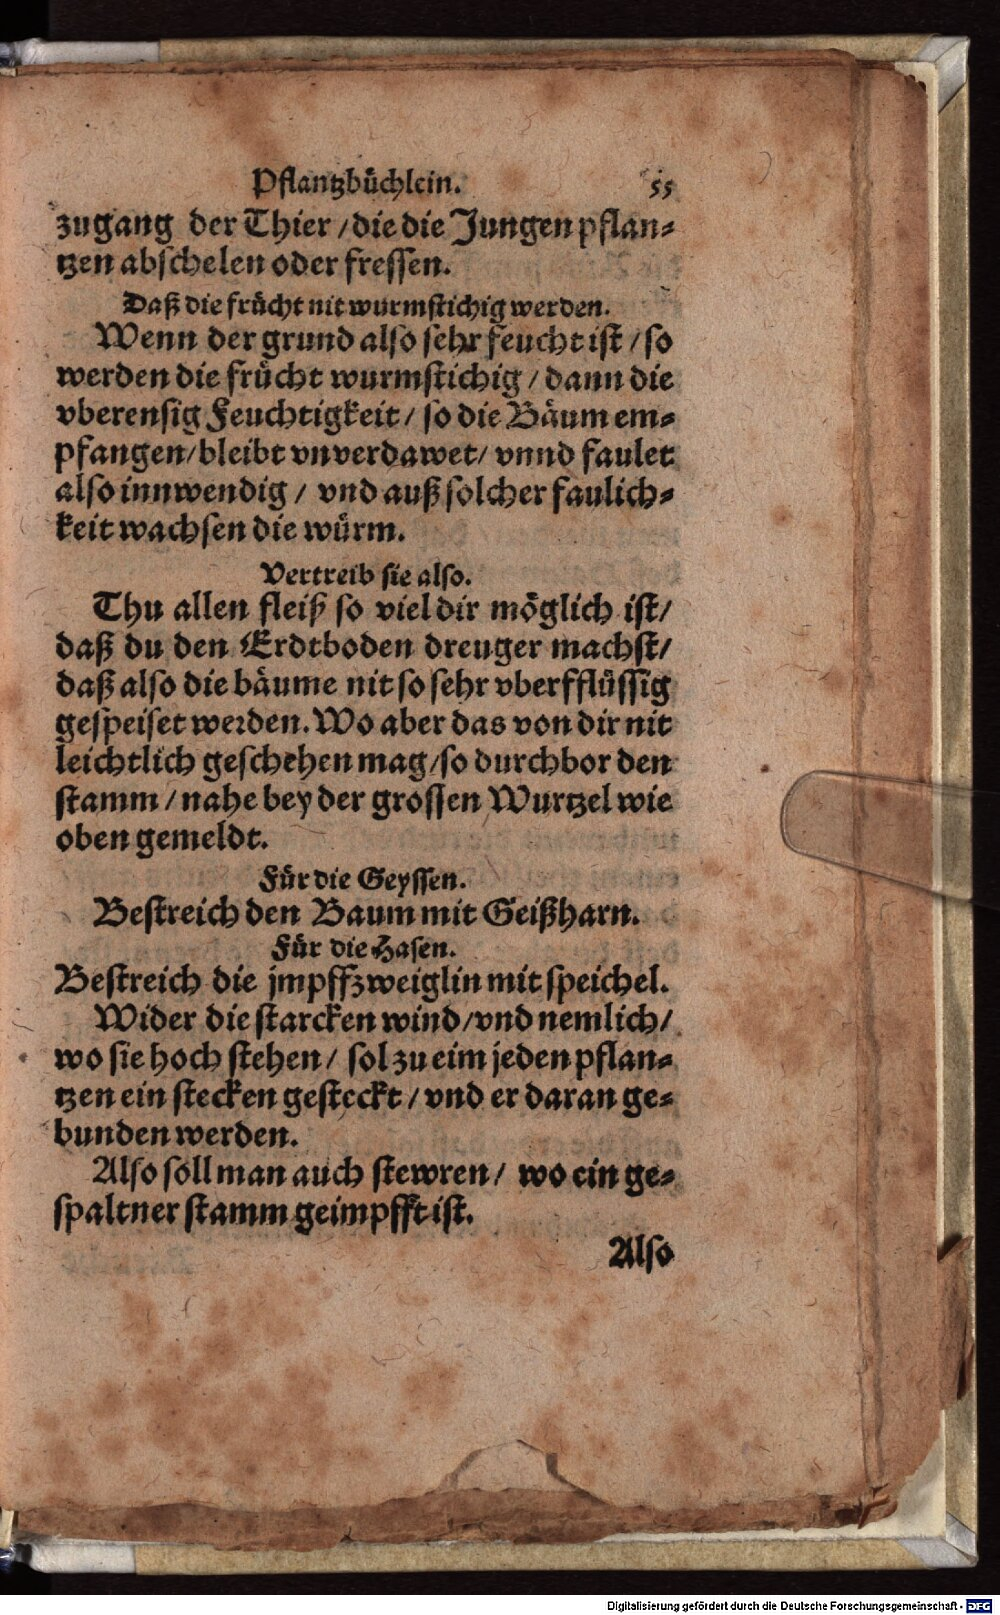 Pflantzbüchlein. 55
zugang der Thier / die die Jungen pflan⸗
tzen abschelen oder fressen.
Daß die frücht nit wurmstichig werden.
Wenn der grund also sehr feucht ist / so
werden die frücht wurmstichig / dann die
vberensig Feuchtigkeit / so die Bäum em⸗
pfangen / bleibt vnverdawet / vnnd faulet
also innwendig / vnd auß solcher faulich⸗
keit wachsen die würm.
Vertreib sie also.
Thu allen fleiß so viel dir möglich ist /
daß du den Erdtboden dreuger machst /
daß also die bäume nit so sehr vberfflüssig
gespeiset werden. Wo aber das von dir nit
leichtlich geschehen mag / so durchbor den
stamm / nahe bey der grossen Wurtzel wie
oben gemeldt.
Für die Geyssen.
Bestreich den Baum mit Geißharn.
Für die Hasen.
Bestreich die jmpffzweiglin mit speichel.
Wider die starcken wind / vnd nemlich /
wo sie hoch stehen / sol zu eim jeden pflan⸗
tzen ein stecken gesteckt / vnd er daran ge⸗
bunden werden.
Also soll man auch stewren / wo ein ge⸗
spaltner stamm geimpfft ist.
Also
Digitalisierung gefördert durch die Deutsche Forschungsgemeinschaft - DFG